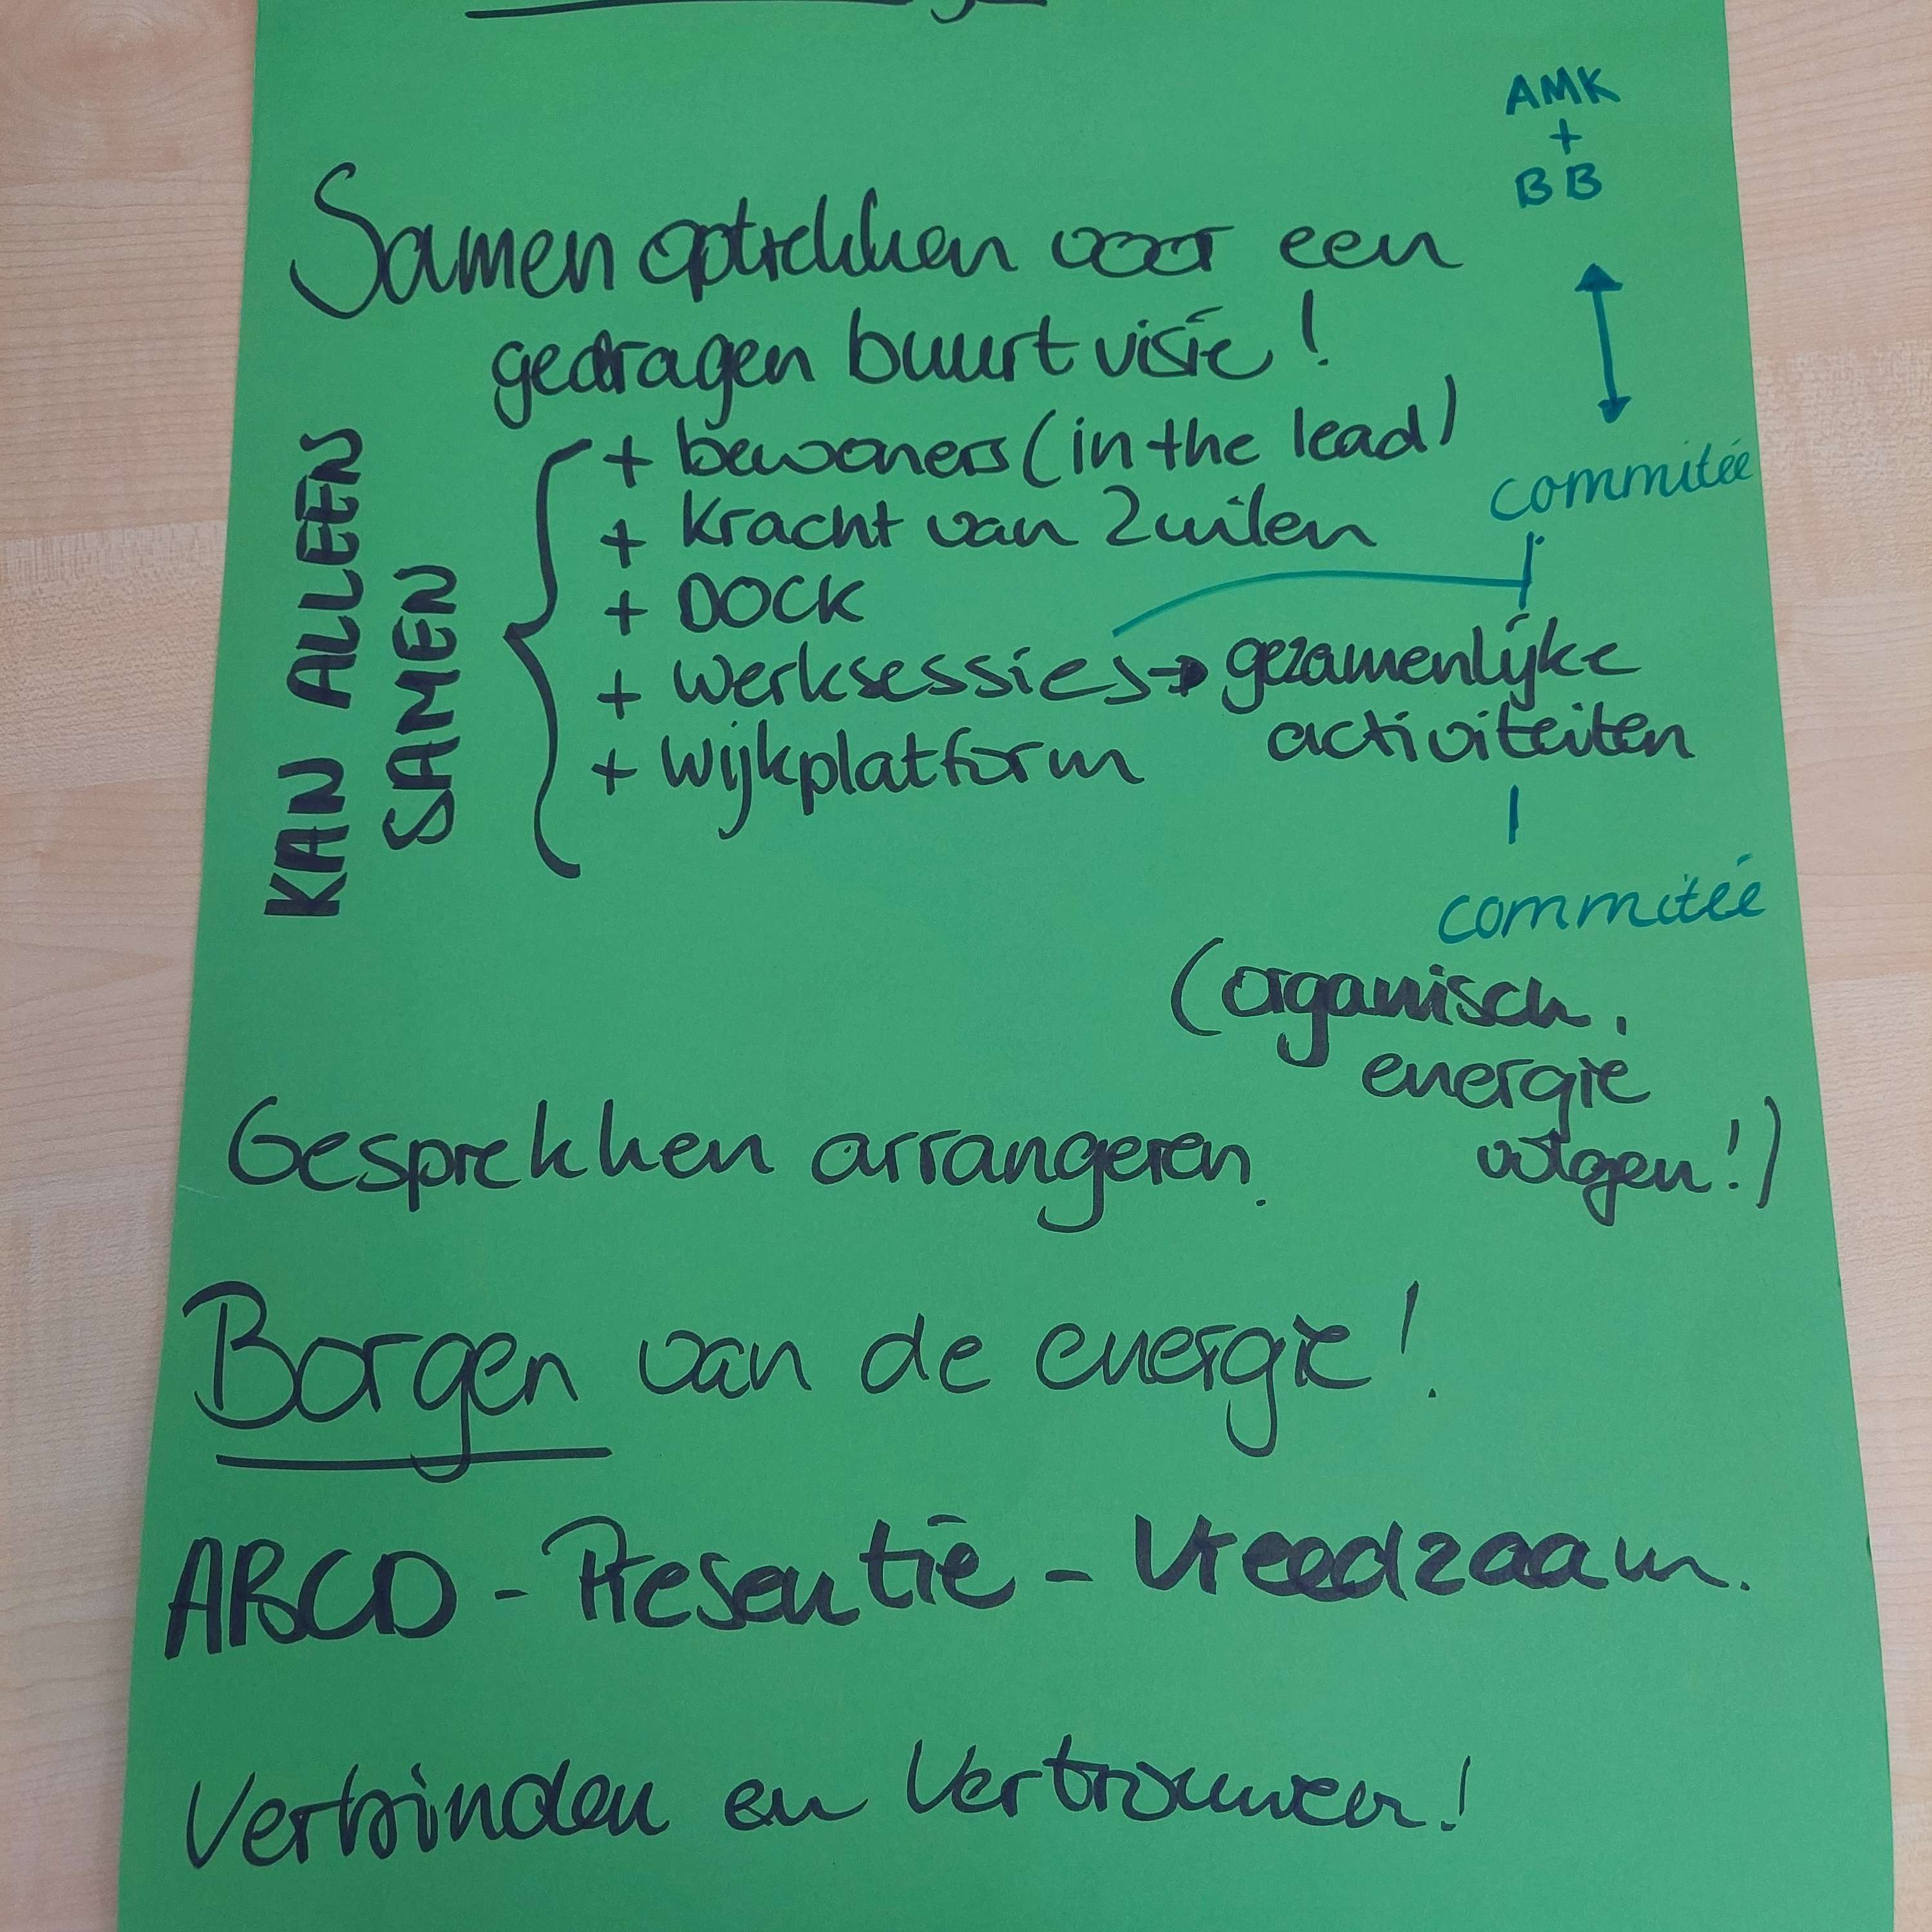 AMK
+
BB
Samen optrekken voor een
gedragen buurtvisie!
KAN ALLEEN
SAMEN
+ bewoners (in the lead)
+ Kracht van Zuilen
+ DOCK
+ werksessies → gezamenlijke
activiteiten
+ Wijkplatform
commitée
commitée
(organisch,
energie
volgen!)
Gesprekken arrangeren.
Borgen van de energie!
ABCD - Presentie - Vreedzaam.
Verbinden en Vertrouwen!